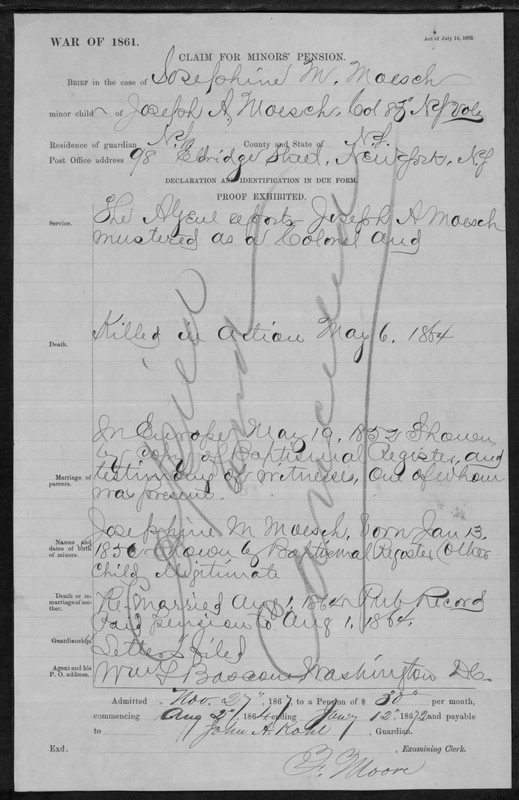 WAR OF 1861.
Act of July 14, 1862.
CLAIM FOR MINORS' PENSION.
BRIEF in the case of Josephine M. Moesch
minor child of Joseph A, Moesch, Col 83d N.Y Vols
Residence of guardian N.Y. County and State of N.Y.
Post Office address 98 Eldridge Street, New York, N.Y
DECLARATION AND IDENTIFICATION IN DUE FORM.
PROOF EXHIBITED.
Service.
The A. Genl reports Joseph A Moesch
mustered as a Colonel and
Death.
Killed in action May 6, 1864
Marriage of parents.
In Europe May 19, 1852 Shown
by copy of Baptismal Register, and
testimony of witnesses, one of whom
was present.
Names and dates of birth of minors.
Josephine M Moesch, Born Jan 13,
1856 Shown by Baptismal Register (other
child illegitimate
Death or re-marriage of mother.
Re-Married Aug 1, 1864 Pub Record
Paid pension to Aug 1, 1864.
Guardianship.
Letters filed
Agent and his P. O. address.
Wm S Bascom Washington DC
Admitted Nov. 27", 1867, to a Pension of $ 30 per month,
commencing Aug 2d, 1864, ending Jany 12", 1872 and payable
to John A. Kohl, Guardian.
Exd. , Examining Clerk.
Moore
Copied
Cancelled